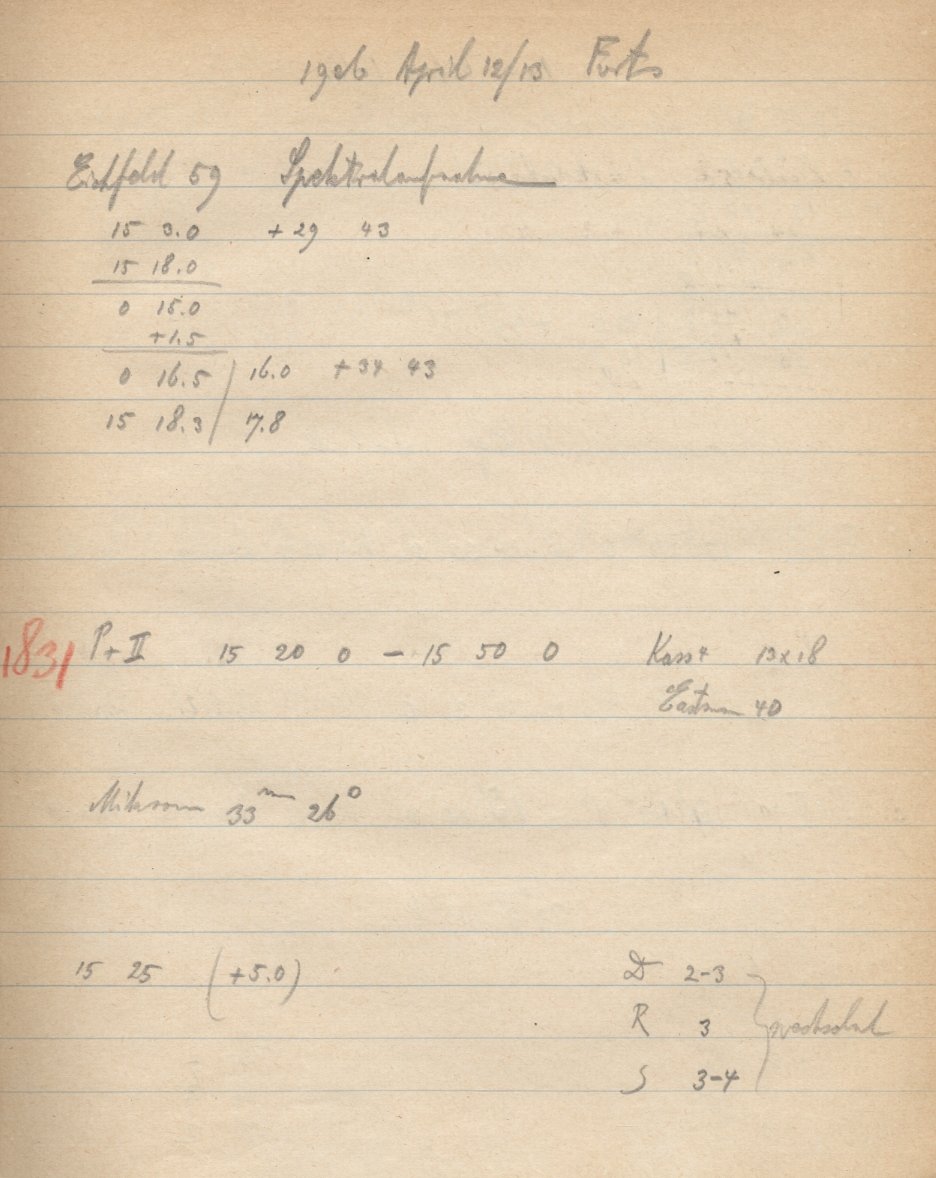 1926 April 12/13 Forts
Eichfeld 59 Spektralaufnahme
15 3.0 +29 43
15 18.0
0 15.0
+1.5
0 16.5 16.0 +34 43
15 18.3 17.8
1831 P+II 15 20 0 - 15 50 0 Kass 4 13x18
Eastman 40
Mikrom 33mm 26°
15 25 (+5.0) D 2-3
R 3 wechselnd
S 3-4